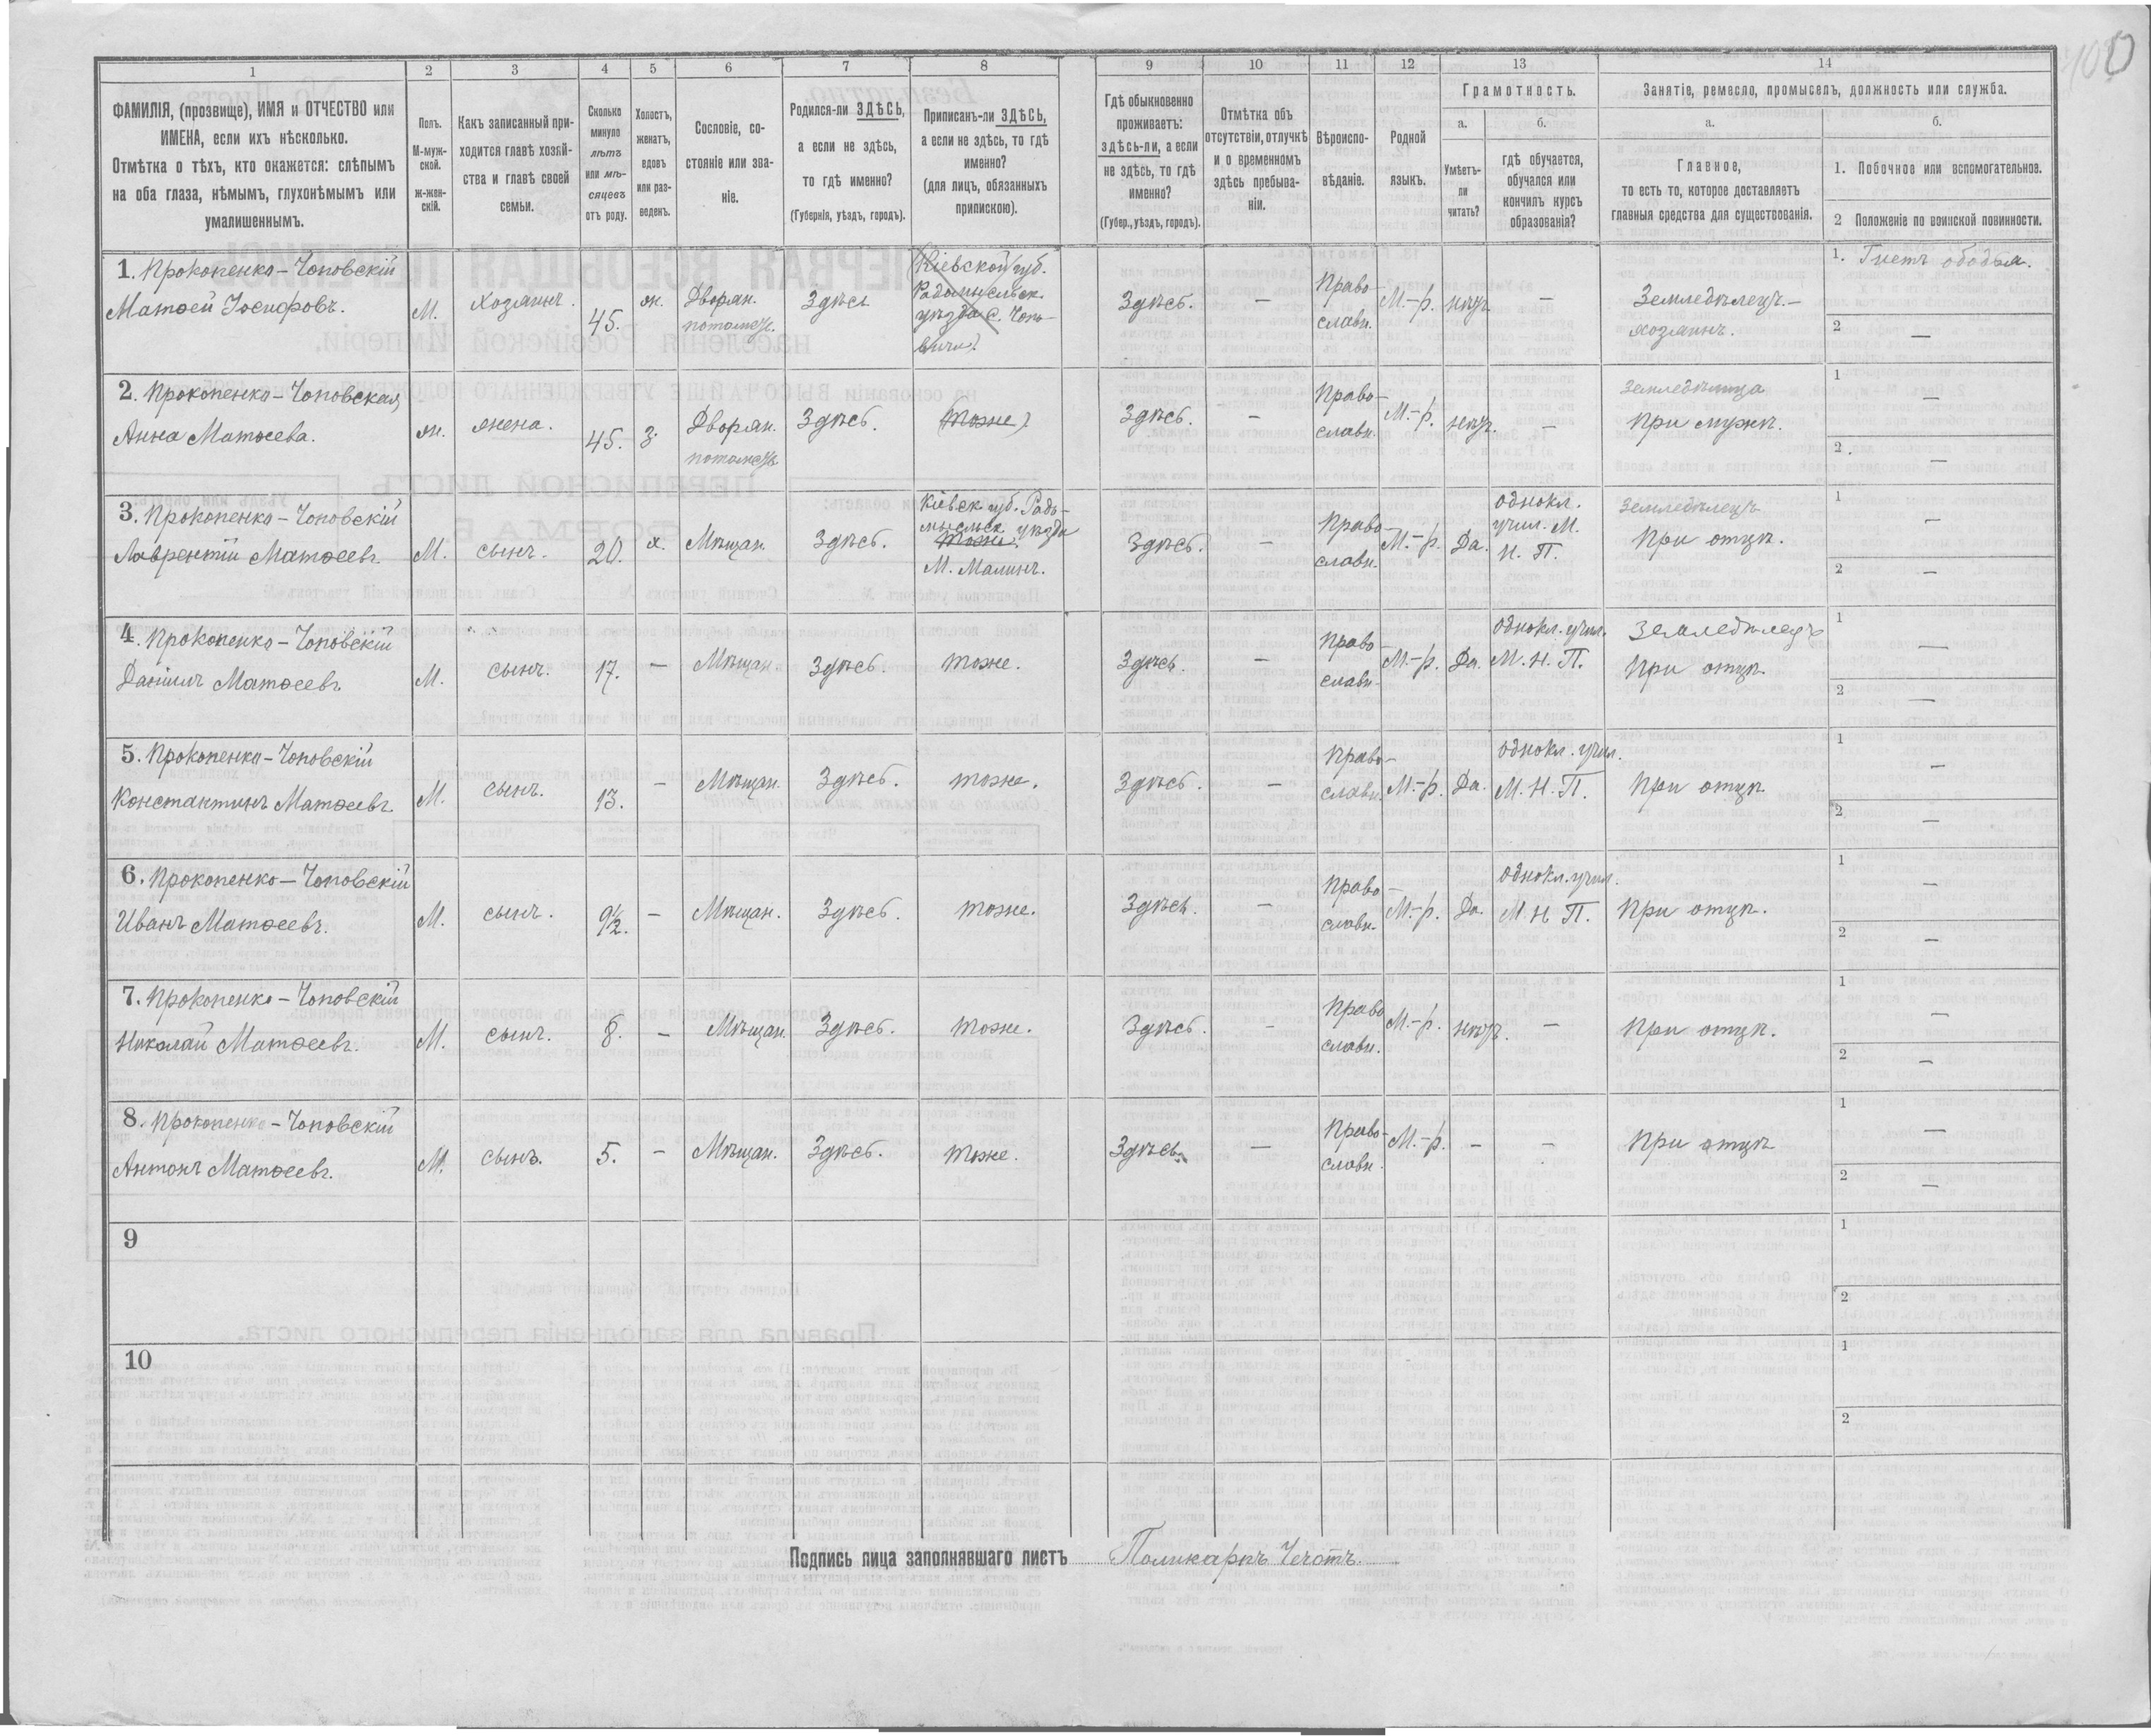 100
1 2 3 4 5 6 7 8 9 10 11 12 13 14
ФАМИЛІЯ, (прозвище), ИМЯ и ОТЧЕСТВО или
ИМЕНА, если ихъ нѣсколько.
Отмѣтка о тѣхъ, кто окажется: слѣпымъ
на оба глаза, нѣмымъ, глухонѣмымъ или
умалишеннымъ.
Полъ.
М-муж-
ской.
ж-жен-
скій.
Какъ записанный при-
ходится главѣ хозяй-
ства и главѣ своей
семьи.
Сколько
минуло
лѣтъ
или мѣ-
сяцевъ
отъ роду.
Холостъ,
женатъ,
вдовъ
или раз-
веденъ.
Сословіе, со-
стояніе или зва-
ніе.
Родился-ли ЗДѢСЬ,
а если не здѣсь,
то гдѣ именно?
(Губернія, уѣздъ, городъ).
Приписанъ-ли ЗДѢСЬ,
а если не здѣсь, то гдѣ
именно?
(для лицъ, обязанныхъ
припискою).
Гдѣ обыкновенно
проживаетъ:
здѣсь-ли, а если
не здѣсь, то гдѣ
именно?
(Губер., уѣздъ, городъ).
Отмѣтка объ
отсутствіи, отлучкѣ
и о временномъ
здѣсь пребыва-
ніи.
Вѣроиспо-
вѣданіе.
Родной
языкъ.
Грамотность.
а.
Умѣетъ-
ли
читать?
б.
гдѣ обучается,
обучался или
кончилъ курсъ
образованія?
Занятіе, ремесло, промыселъ, должность или служба.
а.
Главное,
то есть то, которое доставляетъ
главныя средства для существованія.
б.
1. Побочное или вспомогательное.
2 Положеніе по воинской повинности.
1. Прокопенко-Чоповскій
Матѳей Іосифовъ.
М.
хозяинъ.
45.
ж.
Дворян.
потомств.
Здѣсь
Кіевской губ.
Радомысльск.
уѣзда с. Чопо-
вичи.
Здѣсь.
—
Право-
славн.
М.-р.
нѣтъ
—
Земледѣлецъ-
хозяинъ.
1. Гнетъ ободья.
2 —
2. Прокопенко-Чоповская
Анна Матѳеева.
ж.
жена.
45.
з.
Дворян.
потомств.
Здѣсь.
(тоже)
Здѣсь.
—
Право-
славн.
М.-р.
нѣтъ.
—
Земледѣлица
При мужѣ.
1 —
2 —
3. Прокопенко-Чоповскій
Лаврентій Матѳеевъ.
М.
сынъ.
20.
х.
Мѣщан.
Здѣсь.
Кіевск. губ. Радо-
мысльск. уѣзда
тоже.
М. Малинъ.
Здѣсь.
—
Право-
славн.
М.-р.
Да.
однокл.
учил. М.
Н. П.
Земледѣлецъ
При отцѣ.
1 —
2 —
4. Прокопенко-Чоповскій
Даніилъ Матѳеевъ
М.
сынъ.
17.
—
Мѣщан.
Здѣсь.
тоже.
Здѣсь.
—
Право-
славн.
М.-р.
Да.
однокл. учил.
М. Н. П.
Земледѣлецъ
При отцѣ.
1 —
2 —
5. Прокопенко-Чоповскій
Константинъ Матѳеевъ.
М.
сынъ.
13.
—
Мѣщан.
Здѣсь.
тоже.
Здѣсь.
—
Право-
славн.
М.-р.
Да.
однокл. учил.
М. Н. П.
При отцѣ
1 —
2 —
6. Прокопенко-Чоповскій
Иванъ Матѳеевъ.
М.
сынъ.
9½.
—
Мѣщан.
Здѣсь.
тоже.
Здѣсь.
—
Право-
славн.
М.-р.
Да.
однокл. учил.
М. Н. П.
При отцѣ.
1 —
2 —
7. Прокопенко-Чоповскій
Николай Матѳеевъ.
М.
сынъ.
8.
—
Мѣщан.
Здѣсь.
тоже.
Здѣсь.
—
Право
славн.
М.-р.
нѣтъ.
—
При отцѣ.
1 —
2 —
8. Прокопенко-Чоповскій
Антонъ Матѳеевъ.
М.
сынъ.
5.
—
Мѣщан.
Здѣсь.
тоже.
Здѣсь.
—
Право-
славн.
М.-р.
—
—
При отцѣ
1 —
2 —
9
1
2
10
1
2
Подпись лица заполнявшаго листъ Поликарпъ Чечотъ.